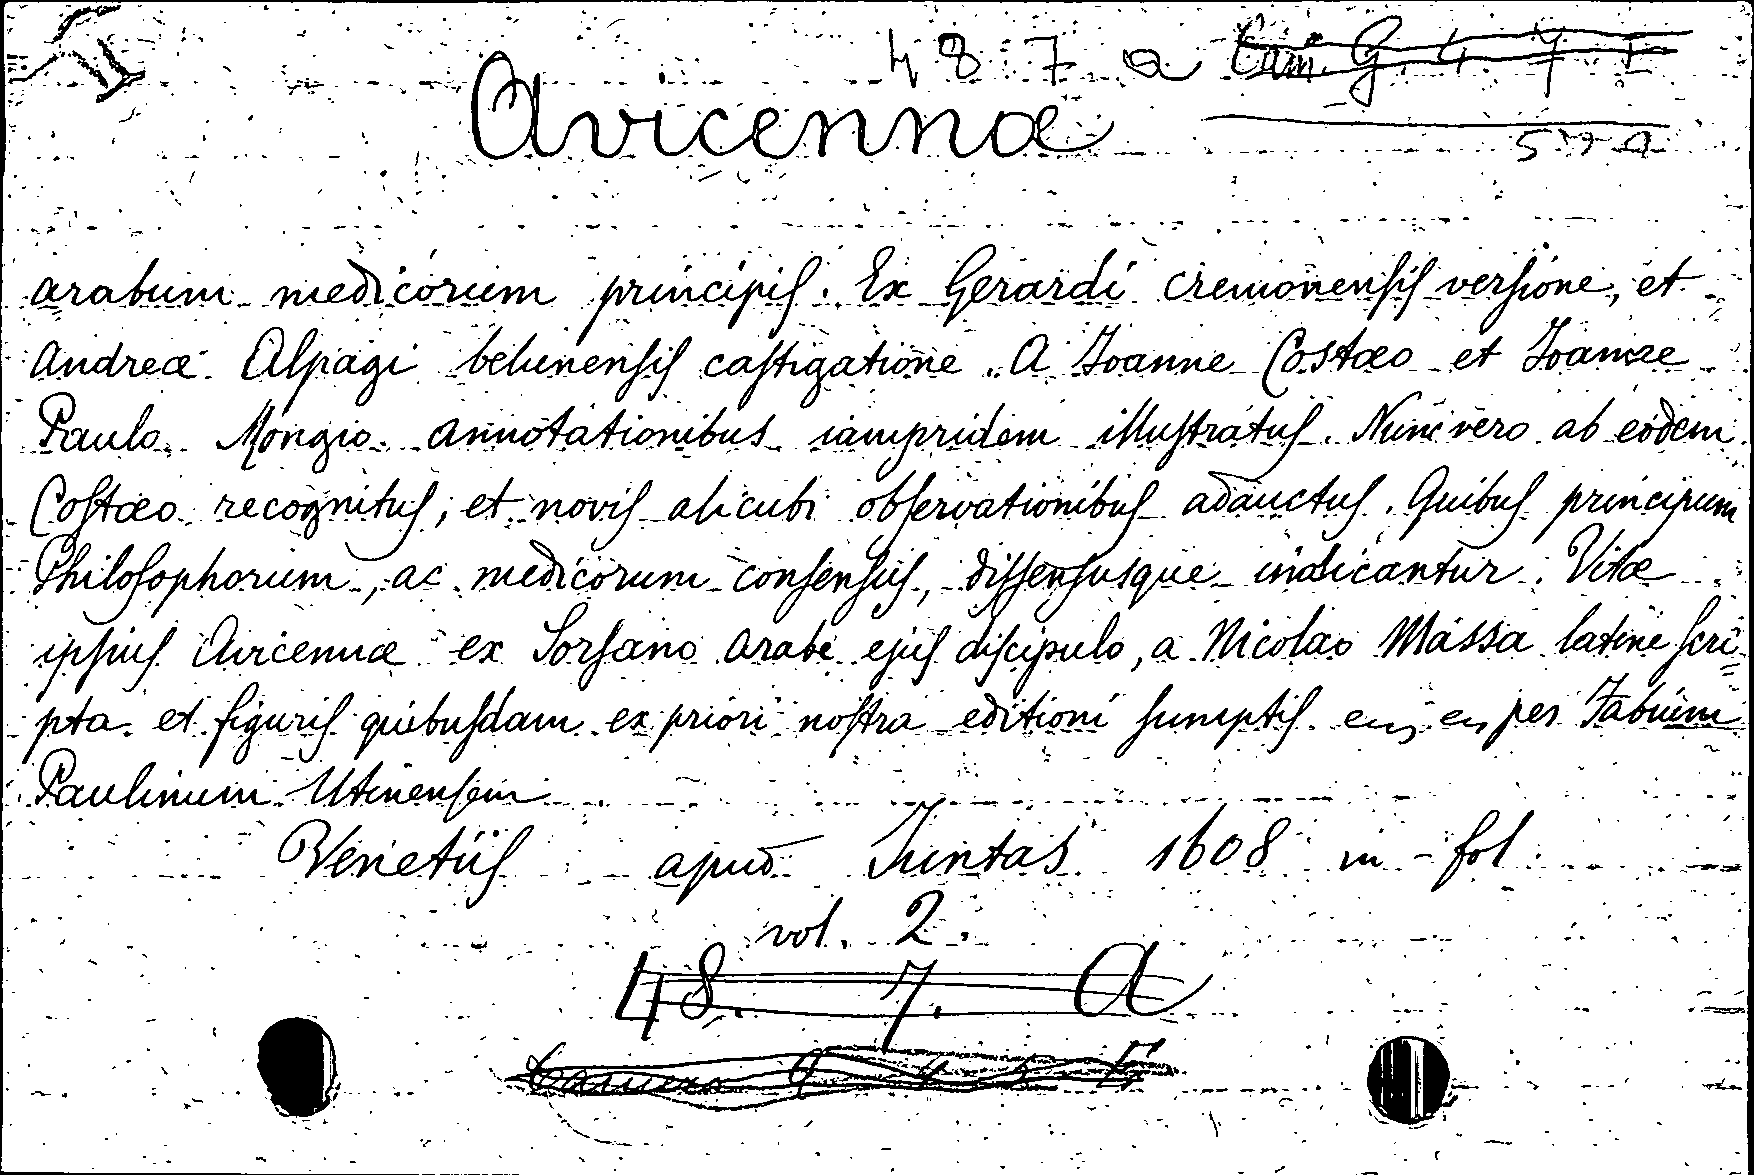 48 7 a Cam. G. 4 7
Avicennæ
arabum medicorum principiſ. Ex Gerardi cremonenſiſ verſione, et
Andreæ Alpagi belunenſiſ caſtigatione. A Joanne Costæo et Joanne
Paulo Mongio annotationibus iampridem illuſtratuſ. Nunc vero ab eodem
Coſtæo recognituſ, et noviſ alicubi obſervationibuſ adauctuſ. Quibuſ principum
Philoſophorum, ac medicorum conſenſuſ, diſſenſusque indicantur. Vitæ
ipſiuſ Avicennæ ex Sorſano arabe ejuſ diſcipulo, a Nicolao Massa latine ſcri=
pta et figuriſ quibuſdam ex priori noſtra editioni ſumptiſ per Fabium
Paulinum Utinenſem
Venetiiſ apud Juntas 1608 in-fol.
vol. 2.
48. 7. A
Camera